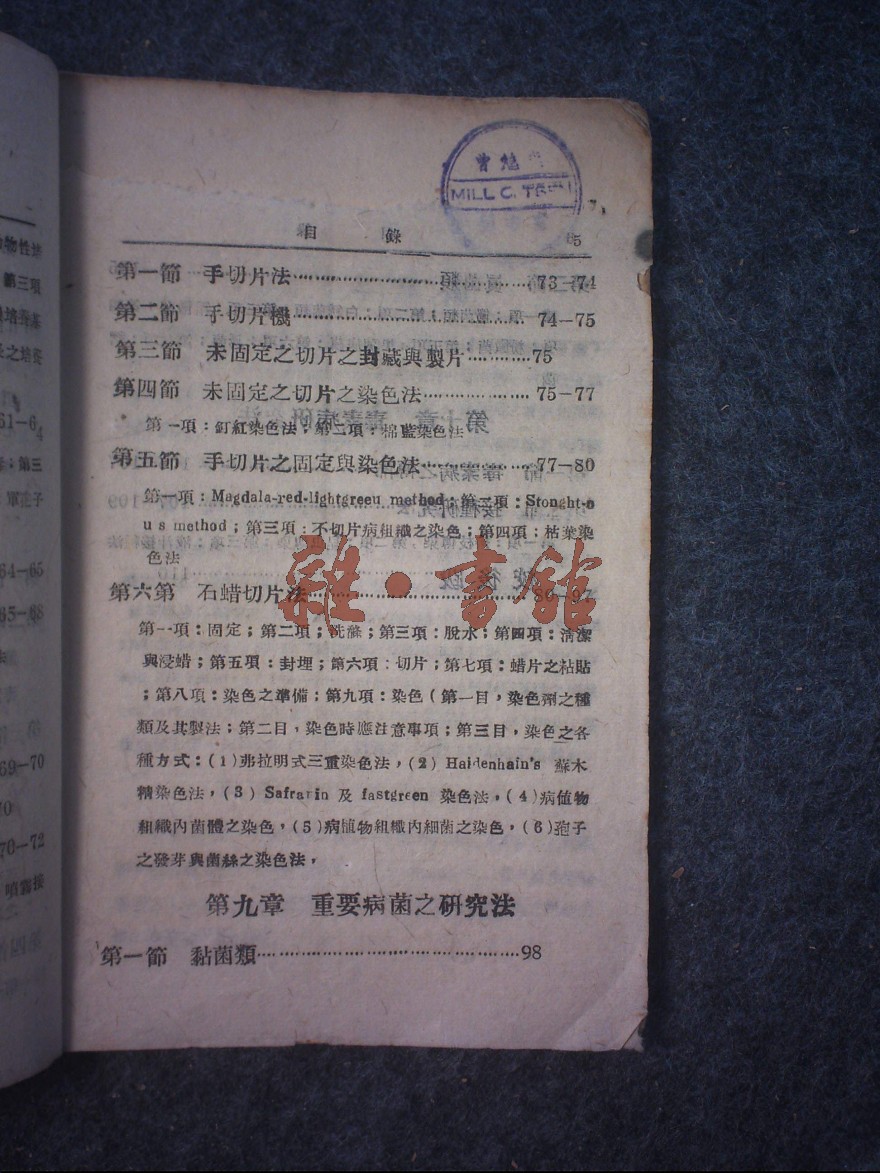 MILL C.
目錄
第一節 手切片法……………………73—74
第二節 手切片機……………………74—75
第三節 未固定之切片之封藏與製片………75
第四節 未固定之切片之染色法………………75—77
第一項:釘紅染色法;第二項:棉藍染色法
第五節 手切片之固定與染色法……………77—80
第一項:Magdala-red-lightgreeu method;第二項:Stonght-o
u s method;第三項:不切片病組織之染色;第四項:枯葉染
色法
第六第 石蜡切片法……………………80—97
第一項:固定;第二項;洗滌;第三項:脫水;第四項:淸潔
與浸蜡;第五項:封埋;第六項:切片;第七項:蜡片之粘貼
;第八項:染色之準備;第九項:染色(第一目,染色劑之種
類及其製法;第二目,染色時應注意事項;第三目,染色之各
種方式:(1)弗拉明式三重染色法,(2) Haidenhain's 蘇木
精染色法,(3) Safrarin 及 fastgreen 染色法,(4)病植物
組織內菌體之染色,(5)病植物組織內細菌之染色,(6)孢子
之發芽與菌絲之染色法,
第九章 重要病菌之研究法
第一節 黏菌類……………………………………98
雜·書館
物性培
第三項
培養基
之培養
61—64
第三
64—65
65—68
69—70
70—72
噴霧接